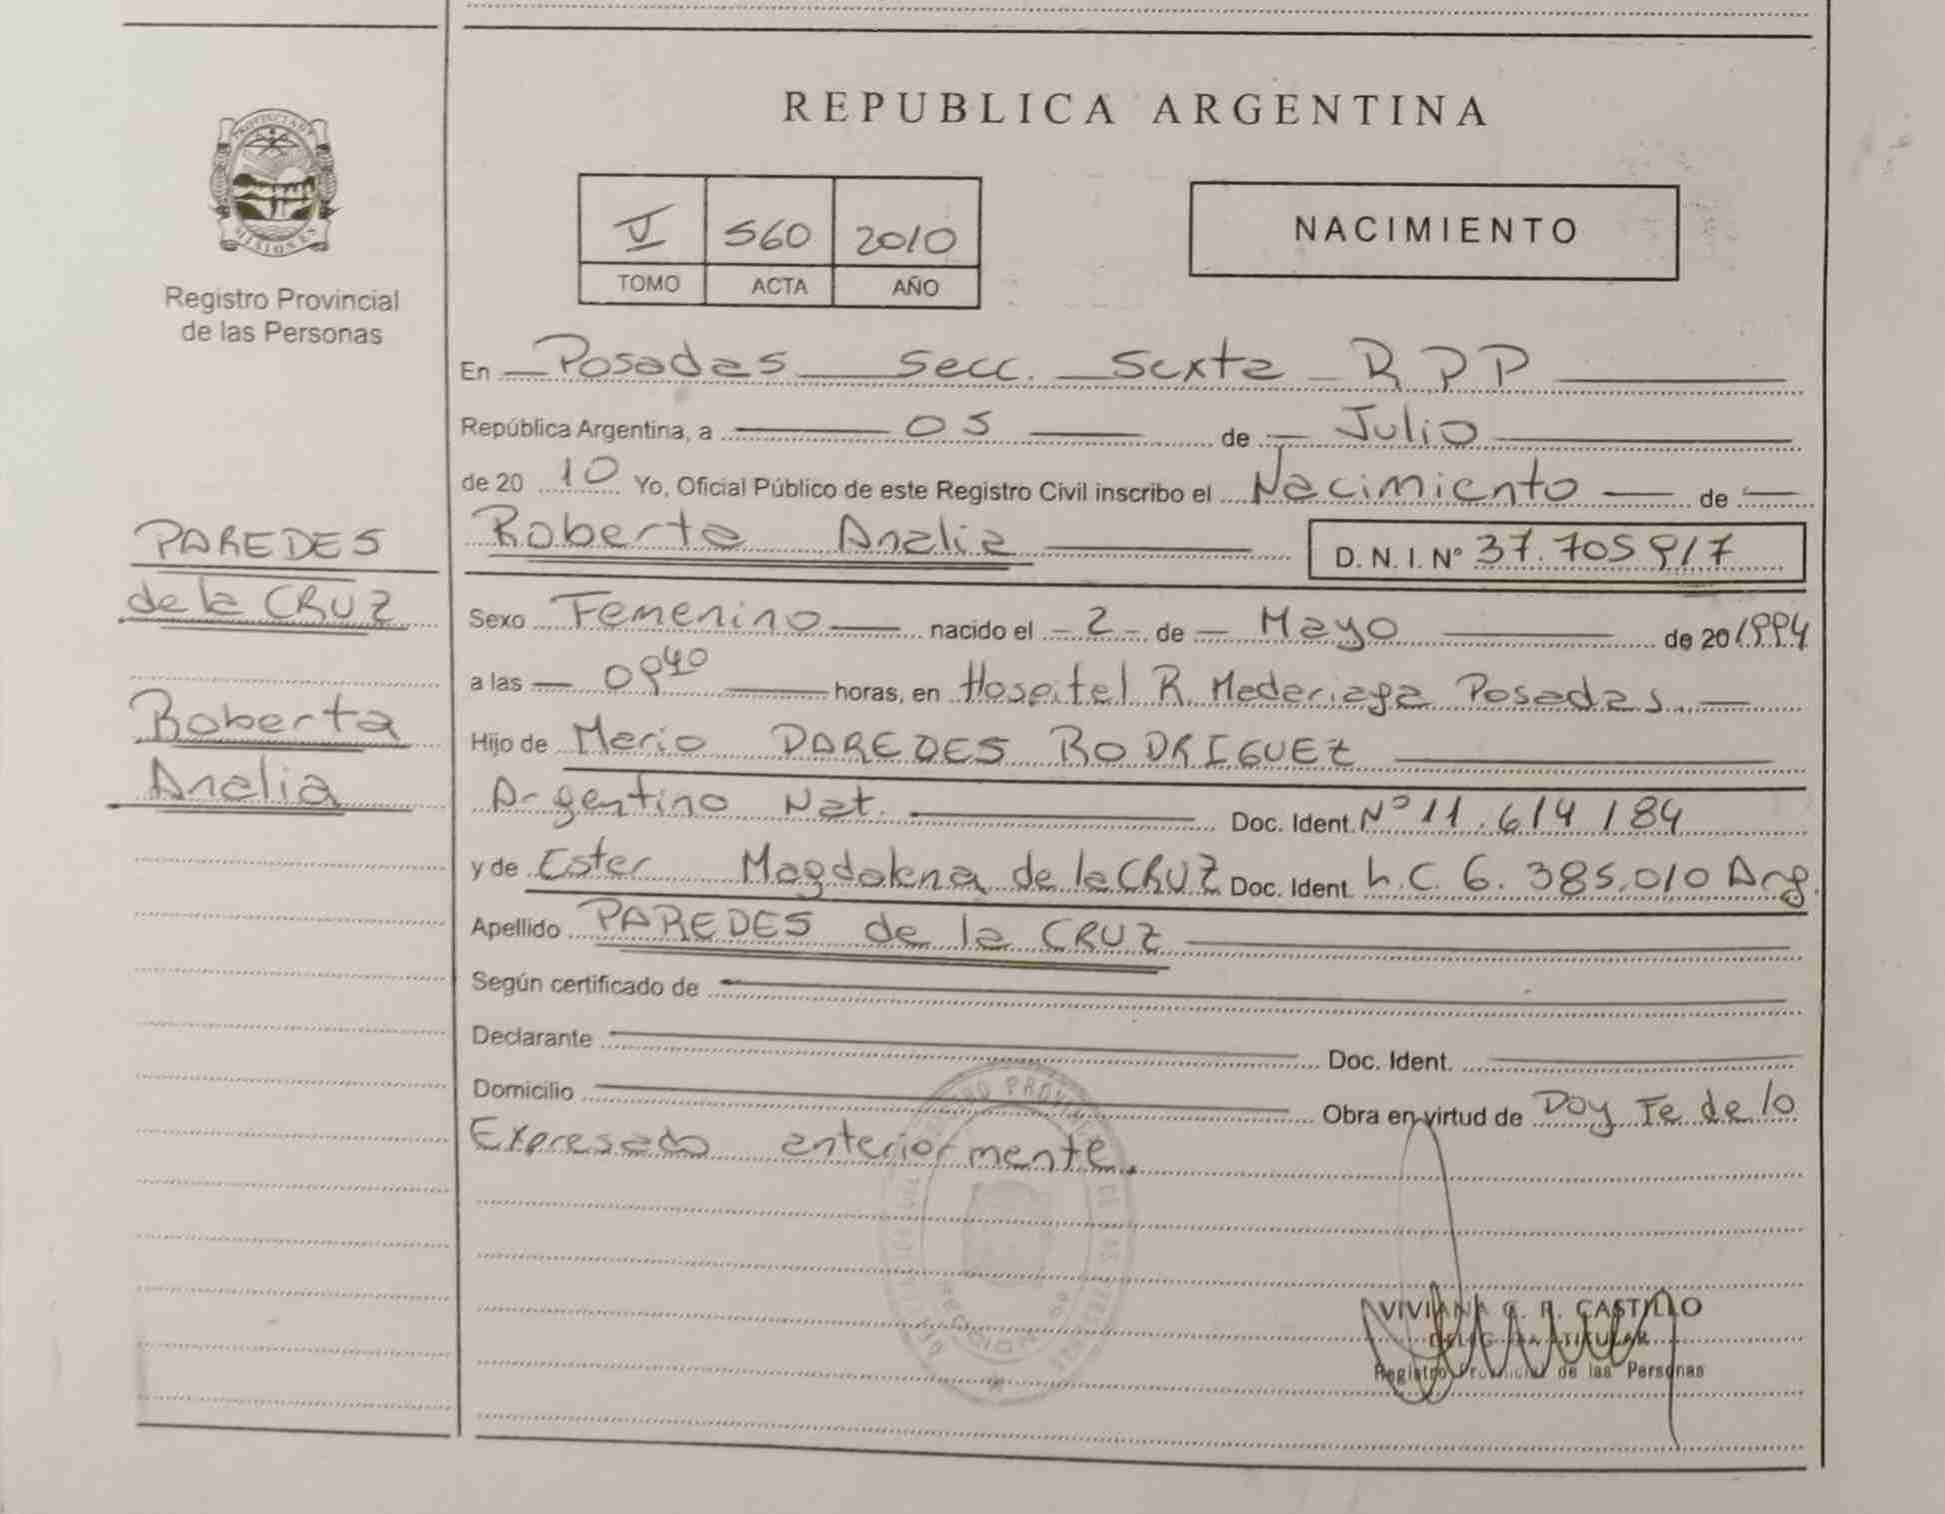 REPUBLICA ARGENTINA
PROVINCIA DE MISIONES
Registro Provincial
de las Personas
V 560 2010
TOMO ACTA AÑO
NACIMIENTO
En Posadas Secc. Sexta RPP
República Argentina, a 05 de Julio
de 20 10 Yo, Oficial Público de este Registro Civil inscribo el Nacimiento de
Roberta Analia D. N. I. Nº 37.705917
PAREDES
de la CRUZ
Roberta
Analia
Sexo Femenino nacido el - 2 - de Mayo de 20 1994
a las 0940 horas, en Hospital R. Madariaga Posadas.
Hijo de Mario PAREDES RODRIGUEZ
Argentino Nat. Doc. Ident. Nº 11.614184
y de Ester Magdalena de la CRUZ Doc. Ident. L.C. 6.385.010 Arg.
Apellido PAREDES de la CRUZ
Según certificado de
Declarante Doc. Ident.
Domicilio Obra en virtud de Doy Fe de lo
Expresado anteriormente.
VIVIANA G. R. CASTILLO
DELEGADA TITULAR
Registro Provincial de las Personas